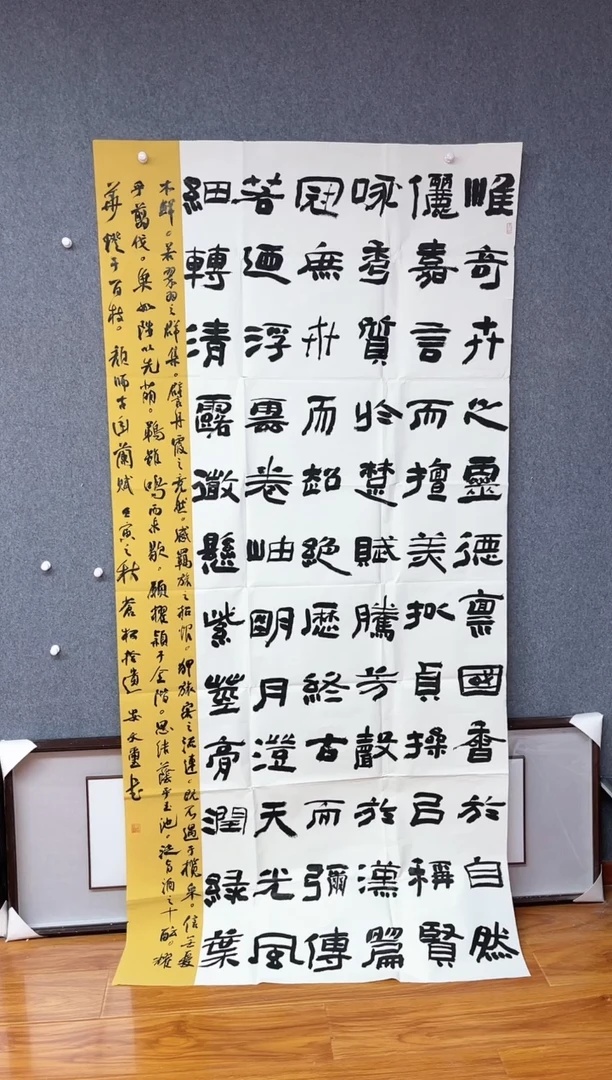 惟奇卉之靈德禀國香於自然
儷嘉言而擅美擬貞操㠯稱賢
咏秀質於楚賦騰芳聲於漢篇
冠庶卉而超絶歷終古而彌傳
若迺浮雲卷岫明月澄天光風
細轉清露微懸紫莖膏潤緑葉
水鮮。若翠羽之群集。譬丹霞之竟然。感羈旅之招恨。狎旅客之流連。既不遇于攬采。信無憂
乎翦伐。魚始陟以先萌。鶗雖鳴而未歇。願擢穎于金階。思結蔭乎玉池。泛旨酒之十醖。耀
華燈于百枝。顏師古幽蘭賦 壬寅之秋 蒼松拾遺 安文